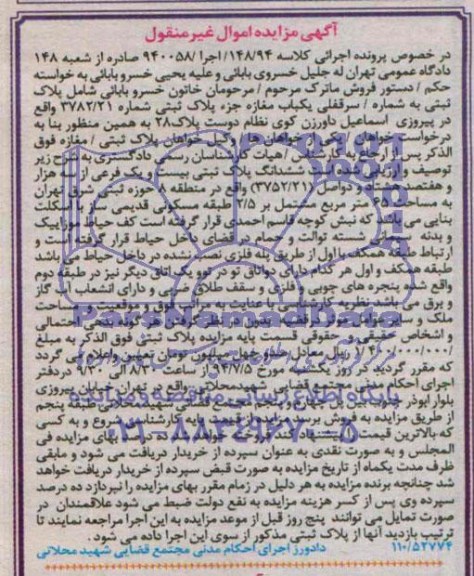 آگهی مزایده اموال غیر منقول
در خصوص پرونده اجرائی کلاسه ۱۴۸/۹۴/اجرا/ ۹۴۰۰۵۸ صادره از شعبه ۱۴۸
دادگاه عمومی تهران له جلیل خسروی بابانی و علیه یحیی خسرو بابانی به خواسته
حکم / دستور فروش ماترک مرحوم / مرحومان خاتون خسرو بابانی شامل پلاک
ثبتی به شماره / سرقفلی یکباب مغازه جزء پلاک ثبتی شماره ۳۷۸۲/۲۱ واقع
در پیروزی اسماعیل داورزن کوی نظام دوست پلاک۲۸ به همین منظور بنا به
درخواست خواهان / یکی از خواهان ها / وکیل خواهان پلاک ثبتی / مغازه فوق
الذکر پس از ارجاع به کارشناس / هیات کارشناسان رسمی دادگستری به شرح زیر
توصیف و ارزیابی شده است ششدانگ پلاک ثبتی بیست و یک فرعی از سه هزار
و هفتصد و هشتاد و دو اصلی (۳۷۵۲/۲۱) واقع در منطقه ۸ حوزه ثبتی شرق تهران
به مساحت ۶۵ متر مربع مشتمل بر ۲/۵ طبقه مسکونی قدیمی ساز با اسکلت
بنایی می باشد که نبش کوچه قاسم احمدی قرار گرفته است کف حیاط موزاییک
و بدنه سیمانی شسته توالت و حمام در فضای داخل حیاط قرار گرفته است و
ارتباط طبقه همکف با اول از طریق پله فلزی نصب شده در داخل حیاط می باشد
طبقه همکف و اول هر کدام دارای دو اتاق تو در تو و یک اتاق دیگر نیز در طبقه دوم
واقع شده پنجره های چوبی و فلزی و سقف طلاق ضربی و دارای انشعاب آب گاز
و برق می باشد نظریه کارشناسی با عنایت به مراتب فوق و موقعیت و مساحت
ملک و سایر عوامل موثر در قضیه بدون در نظر گرفتن هر گونه بدهی احتمالی
و اشخاص حقیقی و حقوقی قیمت پایه مزایده پلاک ثبتی فوق الذکر به مبلغ
ریال معادل چهل میلیون تومان تعیین و اعلام می گردد
که مقرر گردید در روز یکشنبه مورخ ۹۴/۷/۵ از ساعت ۸/۳۰ الی ۹/۳۰ در دفتر
اجرای احکام مدنی مجتمع قضایی شهید محلاتی واقع در تهران خیابان پیروزی
بلوار ابوذر جنوبی بین پل چهارم و پنجم مجتمع قضائی شهید محلاتی طبقه پنجم
از طریق مزایده به فروش برسد مزایده از قیمت پایه کارشناسی شروع و به کسی
که بالاترین قیمت را پیشنهاد کند فروخته خواهد شد ده درصد بهای مزایده فی
المجلس و به صورت نقدی به عنوان سپرده از خریدار دریافت می شود و مابقی
ظرف مدت یکماه از تاریخ مزایده به صورت قبض سپرده از خریدار دریافت خواهد
شد چنانچه برنده مزایده به هر دلیل در زمام مقرر بهای مزایده را نپردازد ده درصد
سپرده وی پس از کسر هزینه مزایده به نفع دولت ضبط می شود علاقمندان در
صورت تمایل می توانند پنج روز قبل از موعد مزایده به این اجرا مراجعه نمایند تا
ترتیب بازدید آنها از پلاک ثبتی مذکور از سوی این اجرا داده می شود.
۱۱۰/۵۲۷۷۴ دادورز اجرای احکام مدنی مجتمع قضایی شهید محلاتی
ParsNamadData
پایگاه اطلاع رسانی مناقصه و مزایده
۰۲۱-۸۸۳۴۹۶۷۰-۵